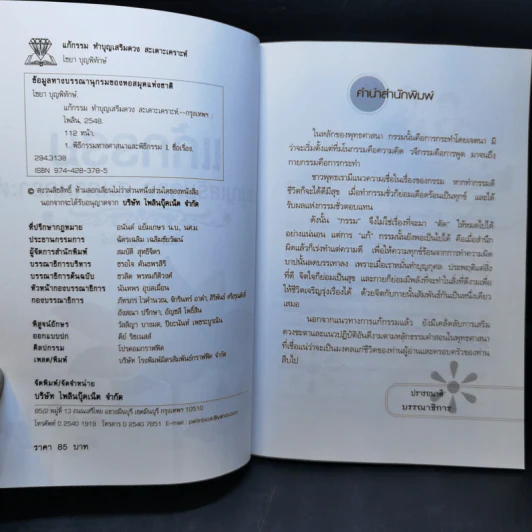 แก้กรรม ทำบุญเสริมดวง สะเดาะเคราะห์
ไชยา บุญพิทักษ์
ข้อมูลทางบรรณานุกรมของหอสมุดแห่งชาติ
ไชยา บุญพิทักษ์.
แก้กรรม ทำบุญเสริมดวง สะเดาะเคราะห์.--กรุงเทพฯ :
ไพลิน, 2548.
112 หน้า.
1. พิธีกรรมทางศาสนาและพิธีกรรม I. ชื่อเรื่อง.
294.3138
ISBN 974-428-378-5
© สงวนลิขสิทธิ์ ห้ามลอกเลียนไม่ว่าส่วนหนึ่งส่วนใดของหนังสือ
นอกจากจะได้รับอนุญาตจาก บริษัท ไพลินบุ๊คเน็ต จำกัด
ที่ปรึกษากฎหมาย อนันต์ แย้มเกษร น.บ., นศ.ม.
ประธานกรรมการ ฉัตรเฉลิม เฉลิมชัยวัฒน์
ผู้จัดการสำนักพิมพ์ สมบัติ สุทธิจิตร
บรรณาธิการบริหาร
บรรณาธิการต้นฉบับ
หัวหน้ากองบรรณาธิการ นันทพร อุบลเมี้ยน
กองบรรณาธิการ
พิสูจน์อักษร
ออกแบบปก
ศิลปกรรม โปรคอมกราฟฟิค
เพลต/พิมพ์ บริษัท โรงพิมพ์มิตรสัมพันธ์กราฟฟิค จำกัด
จัดพิมพ์/จัดจำหน่าย
บริษัท ไพลินบุ๊คเน็ต จำกัด
ราคา 85 บาท
คำนำสำนักพิมพ์
ในหลักของพุทธศาสนา กรรมนั้นคือการกระทำโดยเจตนา มี
ว่าจะเริ่มตั้งแต่ที่มโนกรรมคือความคิด วจีกรรมคือการพูด มาจนถึง
กายกรรมคือการกระทำ
ชาวพุทธเรามีแนวความเชื่อในเรื่องของกรรม หากทำกรรมดี
ชีวิตก็จะได้ดีมีสุข เมื่อทำกรรมชั่วก็ย่อมเดือดร้อนเป็นทุกข์ และได้
รับผลแห่งกรรมชั่วตอบแทน
ดังนั้น “กรรม” จึงไม่ใช่เรื่องที่จะมา “ตัด” ให้หมดไปได้
อย่างแน่นอน แต่การ “แก้” กรรมนั้นยังพอเป็นไปได้ คือเมื่อสำนึก
ผิดแล้วก็เร่งทำแต่ความดี เพื่อให้ความทุกข์ร้อนจากการทำความผิด
บาปนั้นลดบรรเทาลง เพราะเมื่อเราหมั่นทำบุญกุศล ประพฤติแต่สิ่ง
ที่ดี จิตใจก็ย่อมเป็นสุข และกายก็ย่อมมีพลังที่จะทำในสิ่งที่ดีงามเพื่อ
ให้ชีวิตเจริญรุ่งเรืองได้ ด้วยจิตกับกายนั้นสัมพันธ์กันเป็นหนึ่งเดียว
เสมอ
นอกจากแนวทางการแก้กรรมแล้ว ยังมีเคล็ดลับการเสริม
ดวงชะตาและแนวปฏิบัติอันดีงามตามหลักธรรมคำสอนในพุทธศาสนา
ที่เชื่อแน่ว่าจะเป็นมงคลแก่ชีวิตของท่านผู้อ่านและครอบครัวของท่าน
สืบไป
ปรารถนาดี
บรรณาธิการ